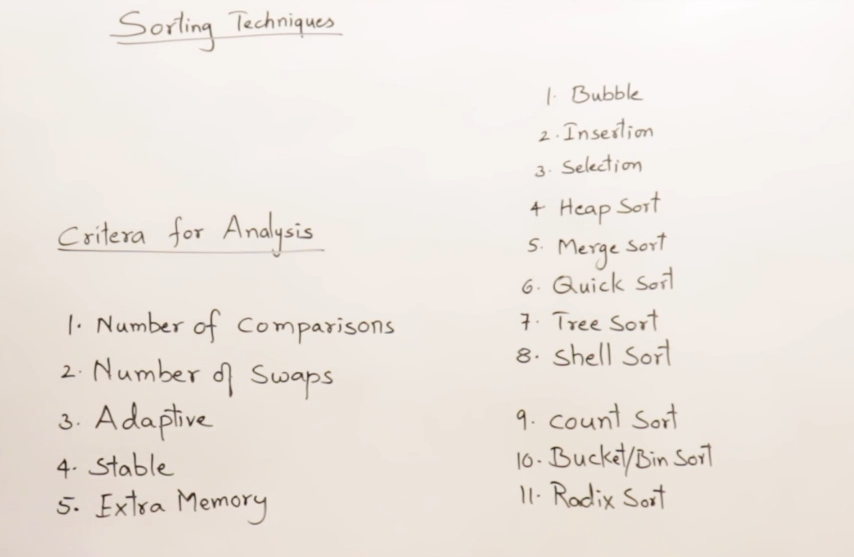 Sorting Techniques
Critera for Analysis
1. Number of Comparisons
2. Number of Swaps
3. Adaptive
4. Stable
5. Extra Memory
1. Bubble
2. Insertion
3. Selection
4 Heap Sort
5. Merge Sort
6. Quick Sort
7. Tree Sort
8. Shell Sort
9. Count Sort
10. Bucket/Bin Sort
11. Radix Sort